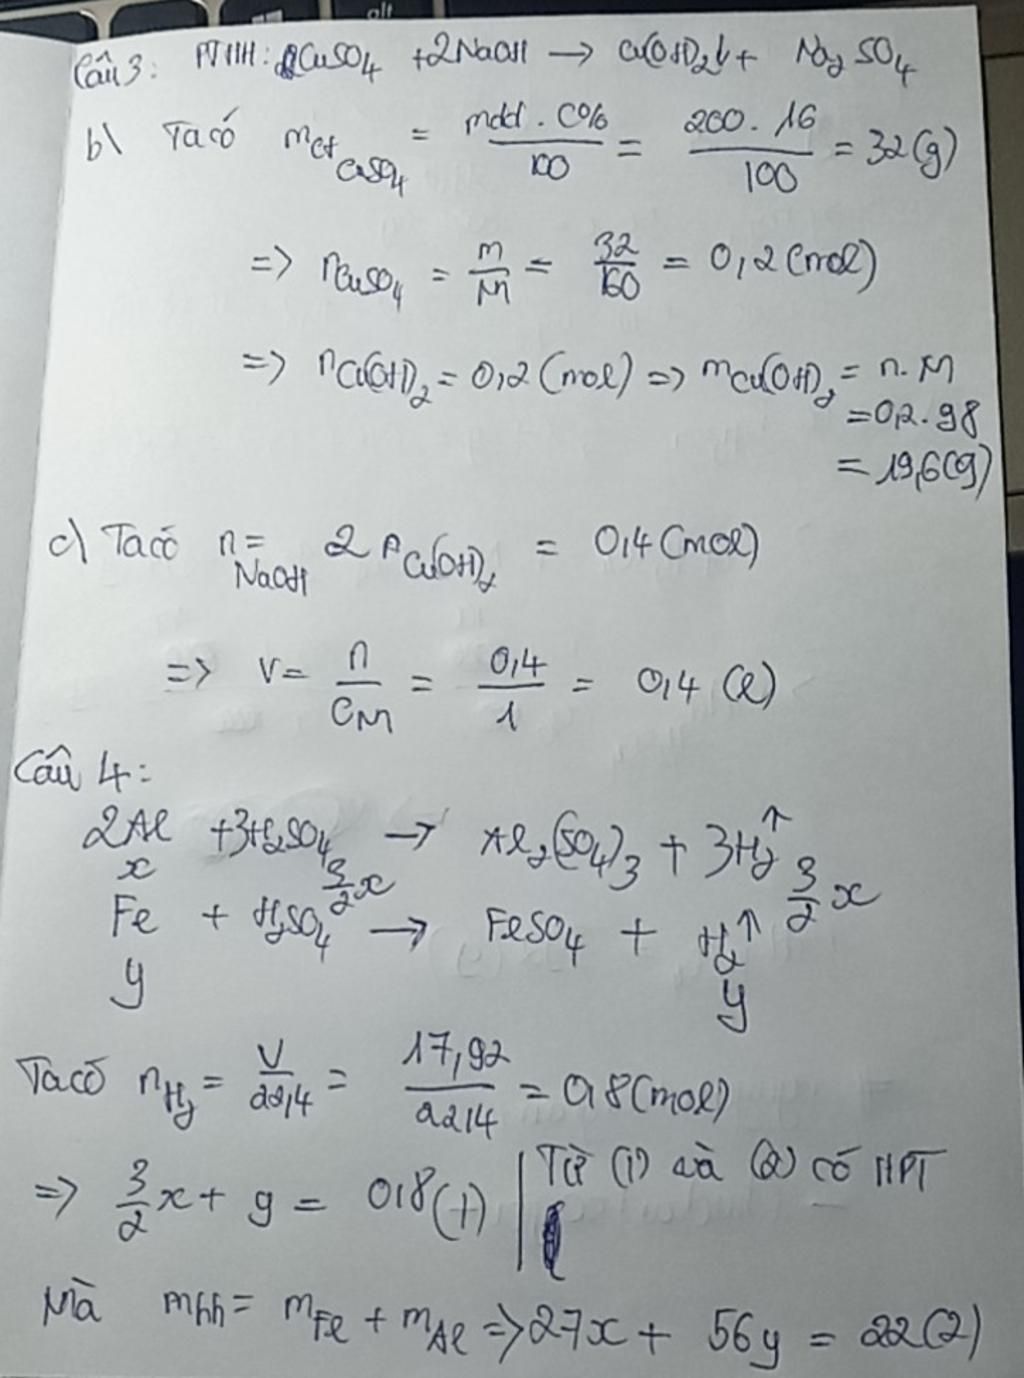 Câu 3: PTHH: CuSO4 + 2NaOH → Cu(OH)2↓ + Na2SO4
b) Ta có mct CuSO4 = mdd . C% / 100 = 200 . 16 / 100 = 32 (g)
=> nCuSO4 = m / M = 32 / 160 = 0,2 (mol)
=> nCu(OH)2 = 0,2 (mol) => mCu(OH)2 = n. M
= 0,2 . 98
= 19,6 (g)
c) Ta có nNaOH = 2 nCu(OH)2 = 0,4 (mol)
=> V = n / CM = 0,4 / 1 = 0,4 (l)
Câu 4:
2Al + 3H2SO4 → Al2(SO4)3 + 3H2↑
x 3/2 x 3/2 x
Fe + H2SO4 → FeSO4 + H2↑
y y
Ta có nH2 = V / 22,4 = 17,92 / 22,4 = 0,8 (mol)
=> 3/2 x + y = 0,8 (1) | Từ (1) và (2) có HPT
Mà mhh = mFe + mAl => 27x + 56y = 22 (2)